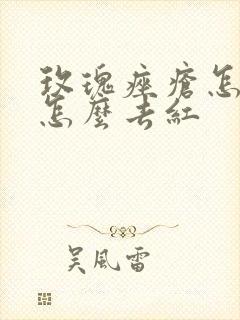 玫瑰痤瘡怎
怎麼去紅
吳風雷